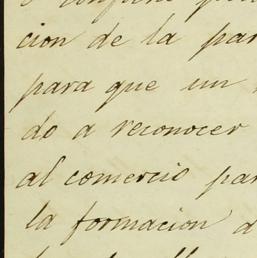 cion de la par
para que un
do a reconocer
al comercio par
la formacion d